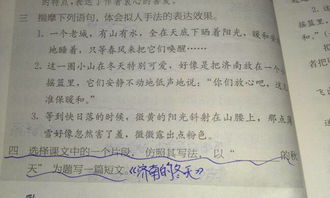 的特点，表达了作者衷心的喜爱。
三 揣摩下列语句，体会拟人手法的表达效果。
1. 一个老城，有山有水，全在天底下晒着阳光，暖和安
地睡着，只等春风来把它们唤醒……
2. 这一圈小山在冬天特别可爱，好像是把济南放在一个小
摇篮里，它们安静不动地低声地说：“你们放心吧，这
准保暖和。”
3. 等到快日落的时候，微黄的阳光斜射在山腰上，那点薄
雪好像忽然害了羞，微微露出点粉色。
四 选择课文中的一个片段，仿照其写法，以“ 的秋
天”为题写一篇短文。《济南的冬天》